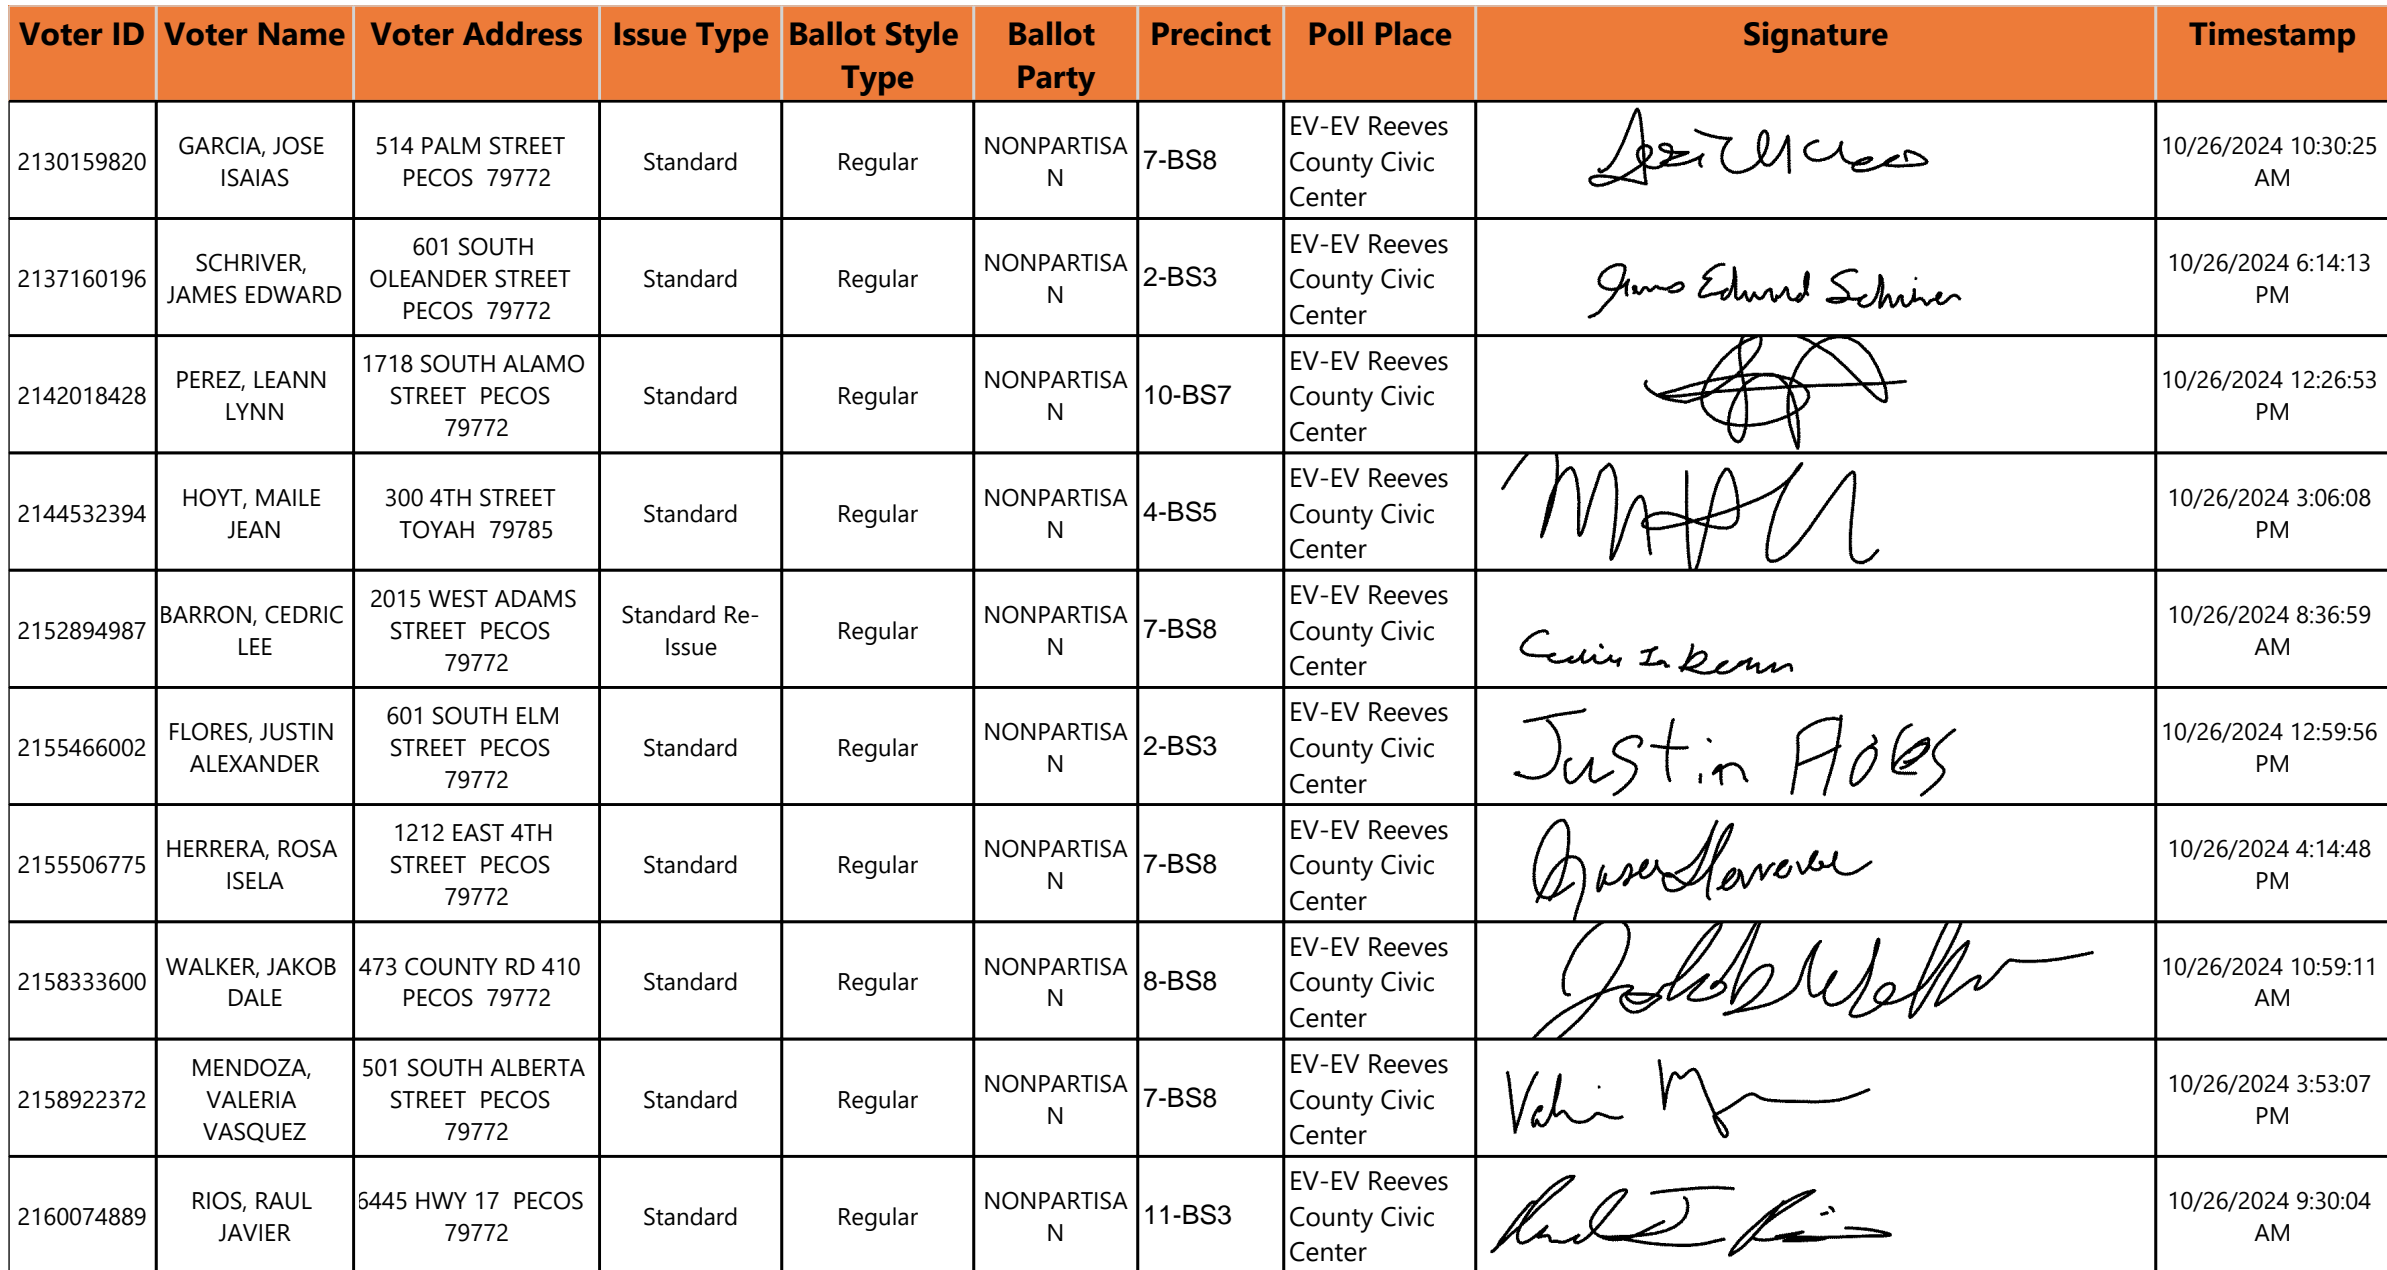 Voter ID Voter Name Voter Address Issue Type Ballot Style Type Ballot Party Precinct Poll Place Signature Timestamp
2130159820 GARCIA, JOSE ISAIAS 514 PALM STREET PECOS 79772 Standard Regular NONPARTISAN 7-BS8 EV-EV Reeves County Civic Center 10/26/2024 10:30:25 AM
2137160196 SCHRIVER, JAMES EDWARD 601 SOUTH OLEANDER STREET PECOS 79772 Standard Regular NONPARTISAN 2-BS3 EV-EV Reeves County Civic Center James Edward Schriver 10/26/2024 6:14:13 PM
2142018428 PEREZ, LEANN LYNN 1718 SOUTH ALAMO STREET PECOS 79772 Standard Regular NONPARTISAN 10-BS7 EV-EV Reeves County Civic Center 10/26/2024 12:26:53 PM
2144532394 HOYT, MAILE JEAN 300 4TH STREET TOYAH 79785 Standard Regular NONPARTISAN 4-BS5 EV-EV Reeves County Civic Center 10/26/2024 3:06:08 PM
2152894987 BARRON, CEDRIC LEE 2015 WEST ADAMS STREET PECOS 79772 Standard Re-Issue Regular NONPARTISAN 7-BS8 EV-EV Reeves County Civic Center 10/26/2024 8:36:59 AM
2155466002 FLORES, JUSTIN ALEXANDER 601 SOUTH ELM STREET PECOS 79772 Standard Regular NONPARTISAN 2-BS3 EV-EV Reeves County Civic Center Justin Flores 10/26/2024 12:59:56 PM
2155506775 HERRERA, ROSA ISELA 1212 EAST 4TH STREET PECOS 79772 Standard Regular NONPARTISAN 7-BS8 EV-EV Reeves County Civic Center 10/26/2024 4:14:48 PM
2158333600 WALKER, JAKOB DALE 473 COUNTY RD 410 PECOS 79772 Standard Regular NONPARTISAN 8-BS8 EV-EV Reeves County Civic Center Jakob Walker 10/26/2024 10:59:11 AM
2158922372 MENDOZA, VALERIA VASQUEZ 501 SOUTH ALBERTA STREET PECOS 79772 Standard Regular NONPARTISAN 7-BS8 EV-EV Reeves County Civic Center 10/26/2024 3:53:07 PM
2160074889 RIOS, RAUL JAVIER 6445 HWY 17 PECOS 79772 Standard Regular NONPARTISAN 11-BS3 EV-EV Reeves County Civic Center 10/26/2024 9:30:04 AM